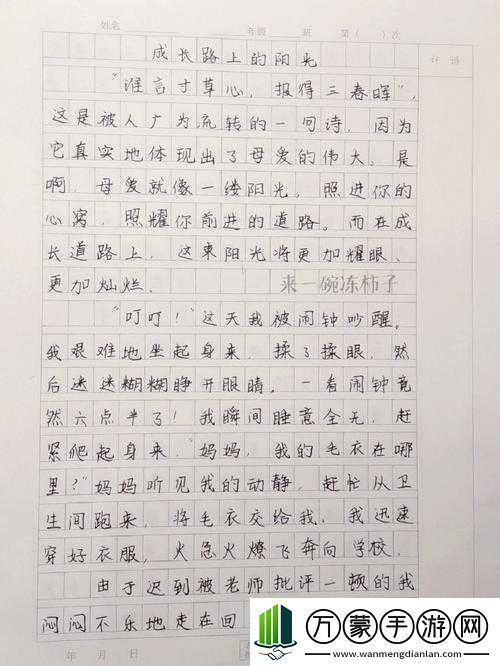 姓名 年级 班 第( )次
成长路上的阳光
评语
“谁言寸草心，报得三春晖”，
这是被人广为流转的一句诗，因为
它真实地体现出了母爱的伟大。是
啊，母爱就像一缕阳光，照进你的
心窝，照耀你前进的道路。而在成
长道路上，这束阳光将更加耀眼、
更加灿烂。
来一碗冻柿子
“叮叮！”这天我被闹钟吵醒。
我艰难地坐起身来，揉了揉眼，然
后迷迷糊糊睁开眼睛。一看闹钟竟
然六点半了！我瞬间睡意全无，赶
紧爬起身来。“妈妈，我的毛衣在哪
里？”妈妈听见我的动静，赶忙从卫
生间跑来，将毛衣交给我，我迅速
穿好衣服，火急火燎飞奔向学校。
由于迟到被老师批评一顿的我
闷闷不乐地走在回
年 月 日
万蒙手游网
www.wanmengdianlan.com